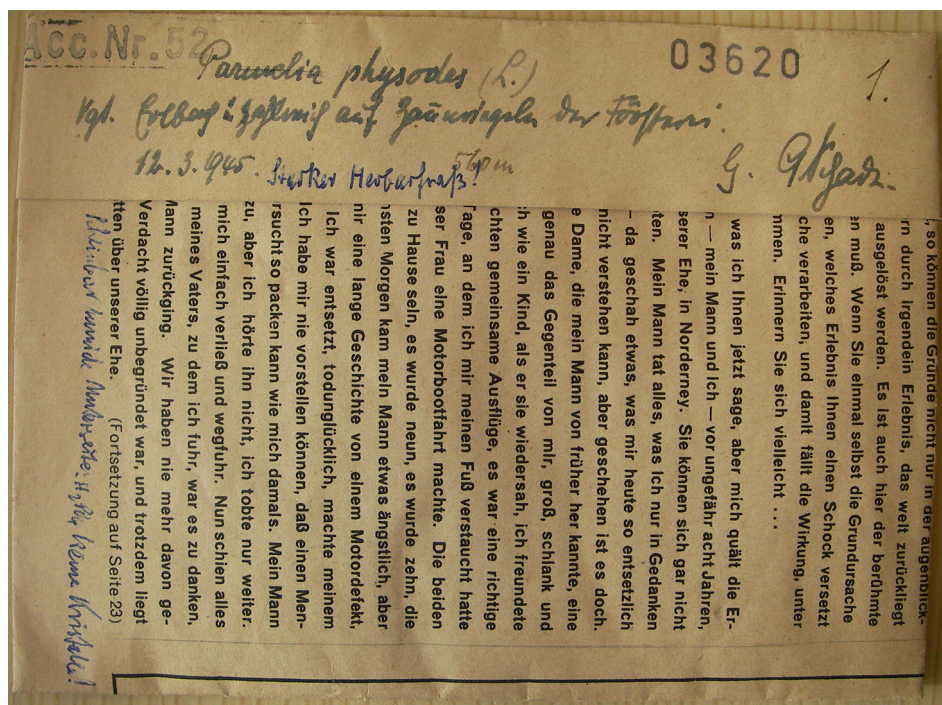 Acc. Nr. 52
03620
1.
Parmelia physodes (L.)
Vgt. Erlbach: zahlreich auf Zaunriegeln der Försterei.
12.3.1945. Starker Herbarfraß!
G. Schade.
, so können die Gründe nicht nur in der augenblick-
rn durch irgendein Erlebnis, das weit zurückliegt
ausgelöst werden. Es ist auch hier der berühmte
en muß. Wenn Sie einmal selbst die Grundursache
en, welches Erlebnis Ihnen einen Schock versetzt
che verarbeiten, und damit fällt die Wirkung, unter
mmen. Erinnern Sie sich vielleicht ...
was ich Ihnen jetzt sage, aber mich quält die Er-
n — mein Mann und ich — vor ungefähr acht Jahren,
serer Ehe, in Norderney. Sie können sich gar nicht
ten. Mein Mann tat alles, was ich nur in Gedanken
— da geschah etwas, was mir heute so entsetzlich
nicht verstehen kann, aber geschehen ist es doch.
e Dame, die mein Mann von früher her kannte, eine
genau das Gegenteil von mir, groß, schlank und
h wie ein Kind, als er sie wiedersah, ich freundete
chten gemeinsame Ausflüge, es war eine richtige
Tage, an dem ich mir meinen Fuß verstaucht hatte
ser Frau eine Motorbootfahrt machte. Die beiden
zu Hause sein, es wurde neun, es wurde zehn, die
nsten Morgen kam mein Mann etwas ängstlich, aber
mir eine lange Geschichte von einem Motordefekt,
Ich war entsetzt, todunglücklich, machte meinem
Ich habe mir nie vorstellen können, daß einen Men-
rsucht so packen kann wie mich damals. Mein Mann
zu, aber ich hörte ihn nicht, ich tobte nur weiter.
mich einfach verließ und wegfuhr. Nun schien alles
meines Vaters, zu dem ich fuhr, war es zu danken,
Mann zurückging. Wir haben nie mehr davon ge-
Verdacht völlig unbegründet war, und trotzdem liegt
tten über unserer Ehe.
(Fortsetzung auf Seite 23)
Unterseite: keine Kristalle!